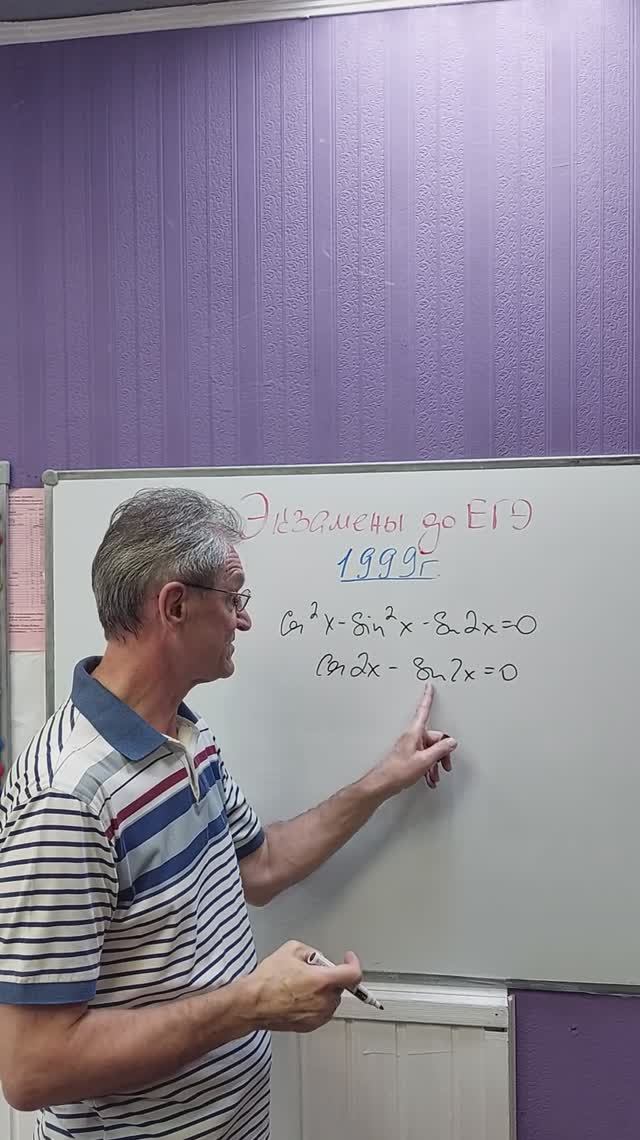 Экзамены до ЕГЭ
1999г.
cos²x - sin²x - sin2x=0
cos2x - sin2x=0